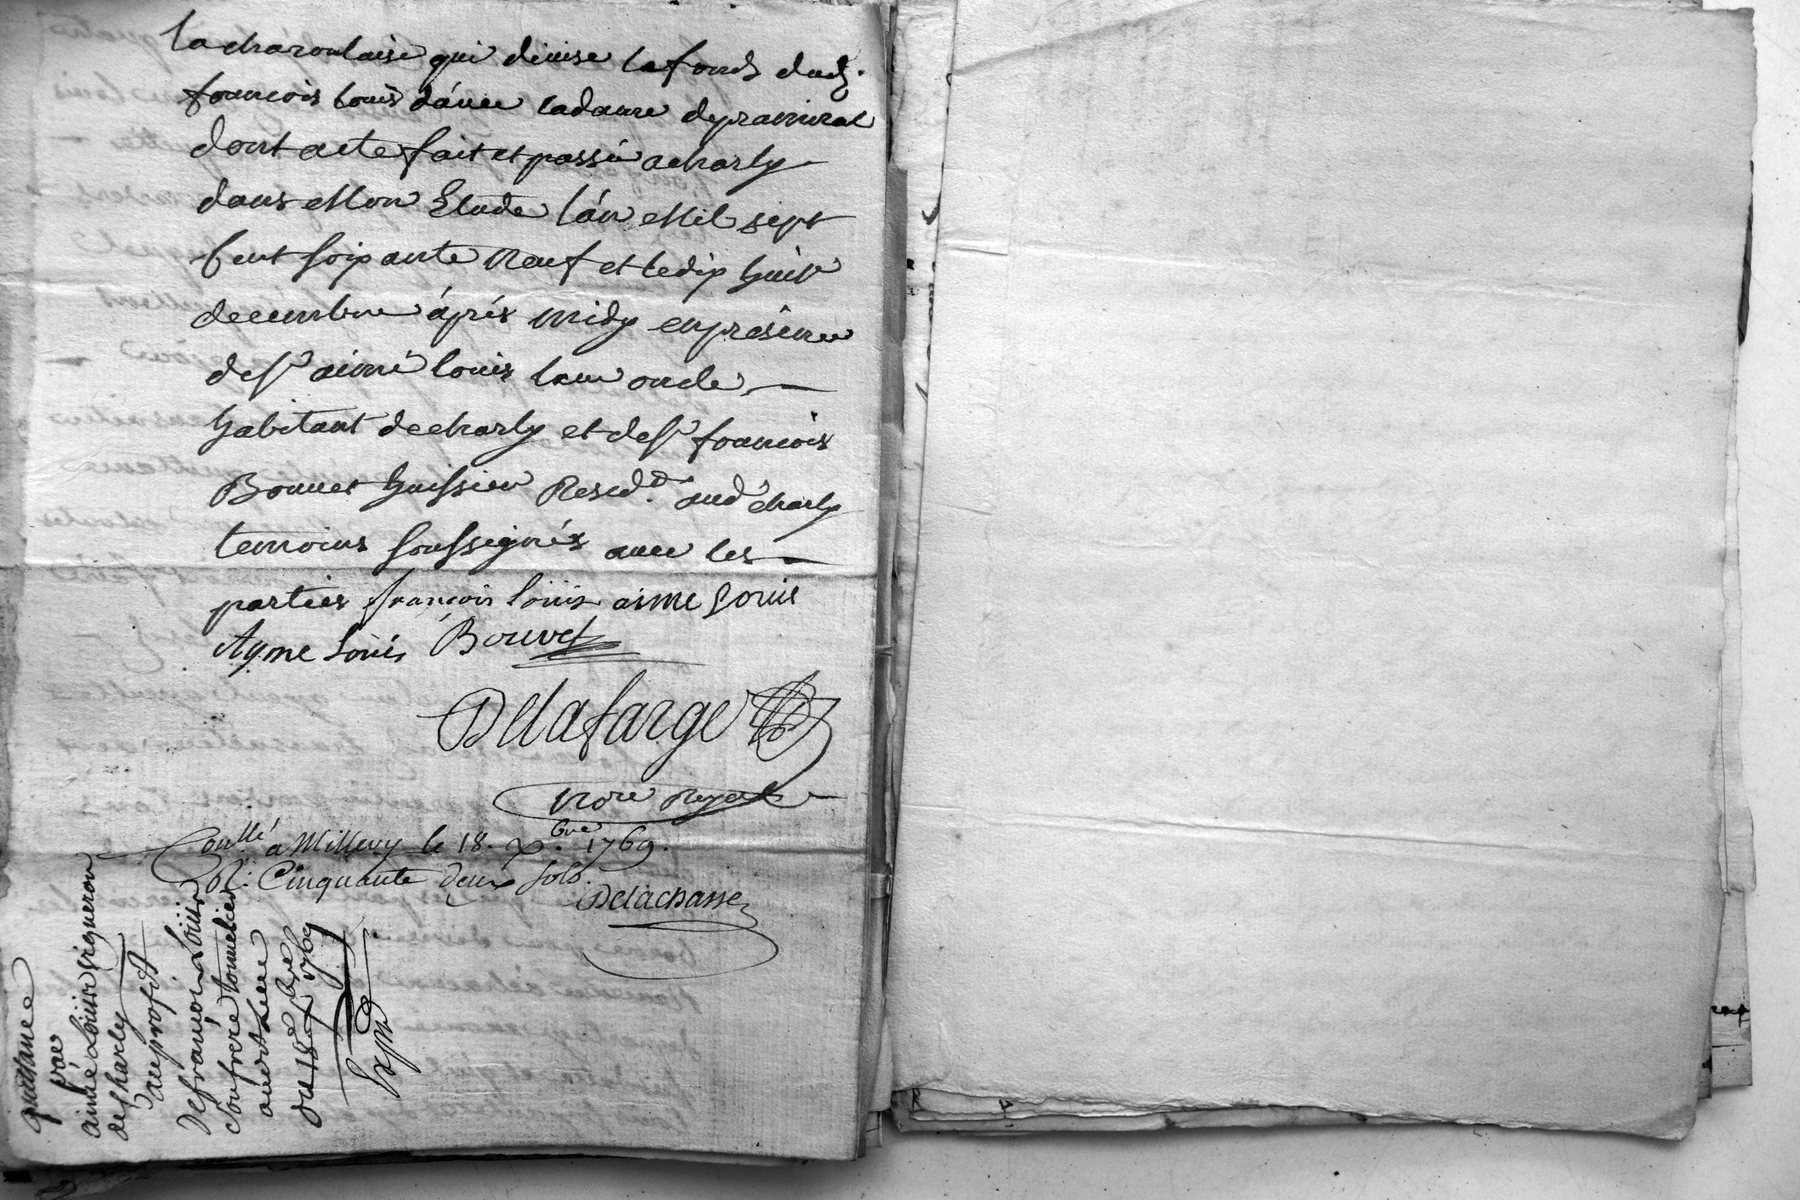 la charoulaise qui divise le fonds dud.
francois louis d'avec la dame depramiral
dont acte fait et passé a charly
dans Mon Etude l'an Mil sept
Cent soixante Neuf et le dix huit
decembre áprés midy en presence
de sr aimé louis leur oncle
habitant de charly et de sr francois
Bouvet huissier Resid.t aud. charly
temoins soussignés avec les
parties françois loüis aime louis
Ayme louis Bouvet
Delafarge
Nore Royal
Conllé a Millery le 18. Xbre 1769.
R. Cinquante deux sols.
Delachasse
quittance
par
aimé Loüis vigneron
de charly
au profit
De francois Loüis
son frere tonnelier
au vert lieu
du 18e Xbre 1769
Exp.ée